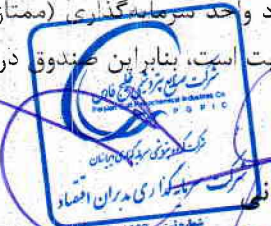 د واحد سرمایه‌گذاری (ممتاز
ت است، بنابراین صندوق در
شرکت صنایع پتروشیمی خلیج فارس
Persian Gulf Petrochemical Industries Co
P G P I C
شرکت گروه پتروشیمی سرمایه‌گذاری ایرانیان
شرکت سرمایه‌گذاری مدبران اقتصاد
نی